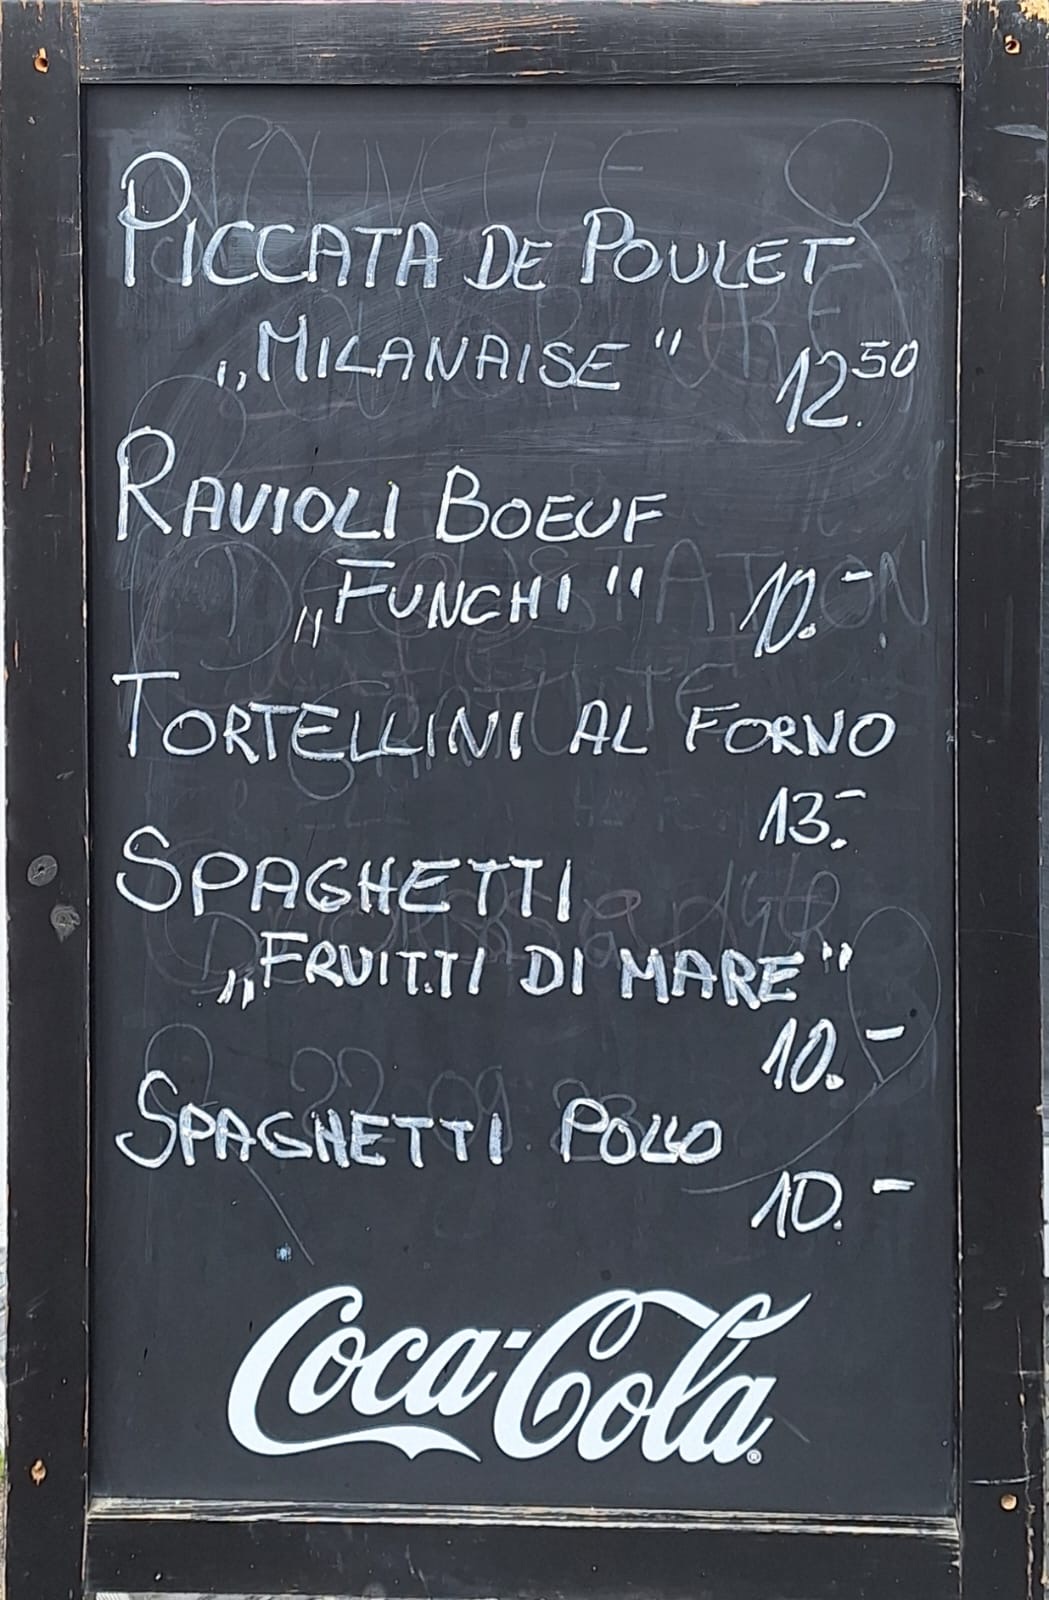 PICCATA DE POULET
„MILANAISE" 12.50
RAVIOLI BOEUF
„FUNCHI" 10.-
TORTELLINI AL FORNO
13.-
SPAGHETTI
„FRUITTI DI MARE"
10.-
SPAGHETTI POLLO
10.-
Coca-Cola®